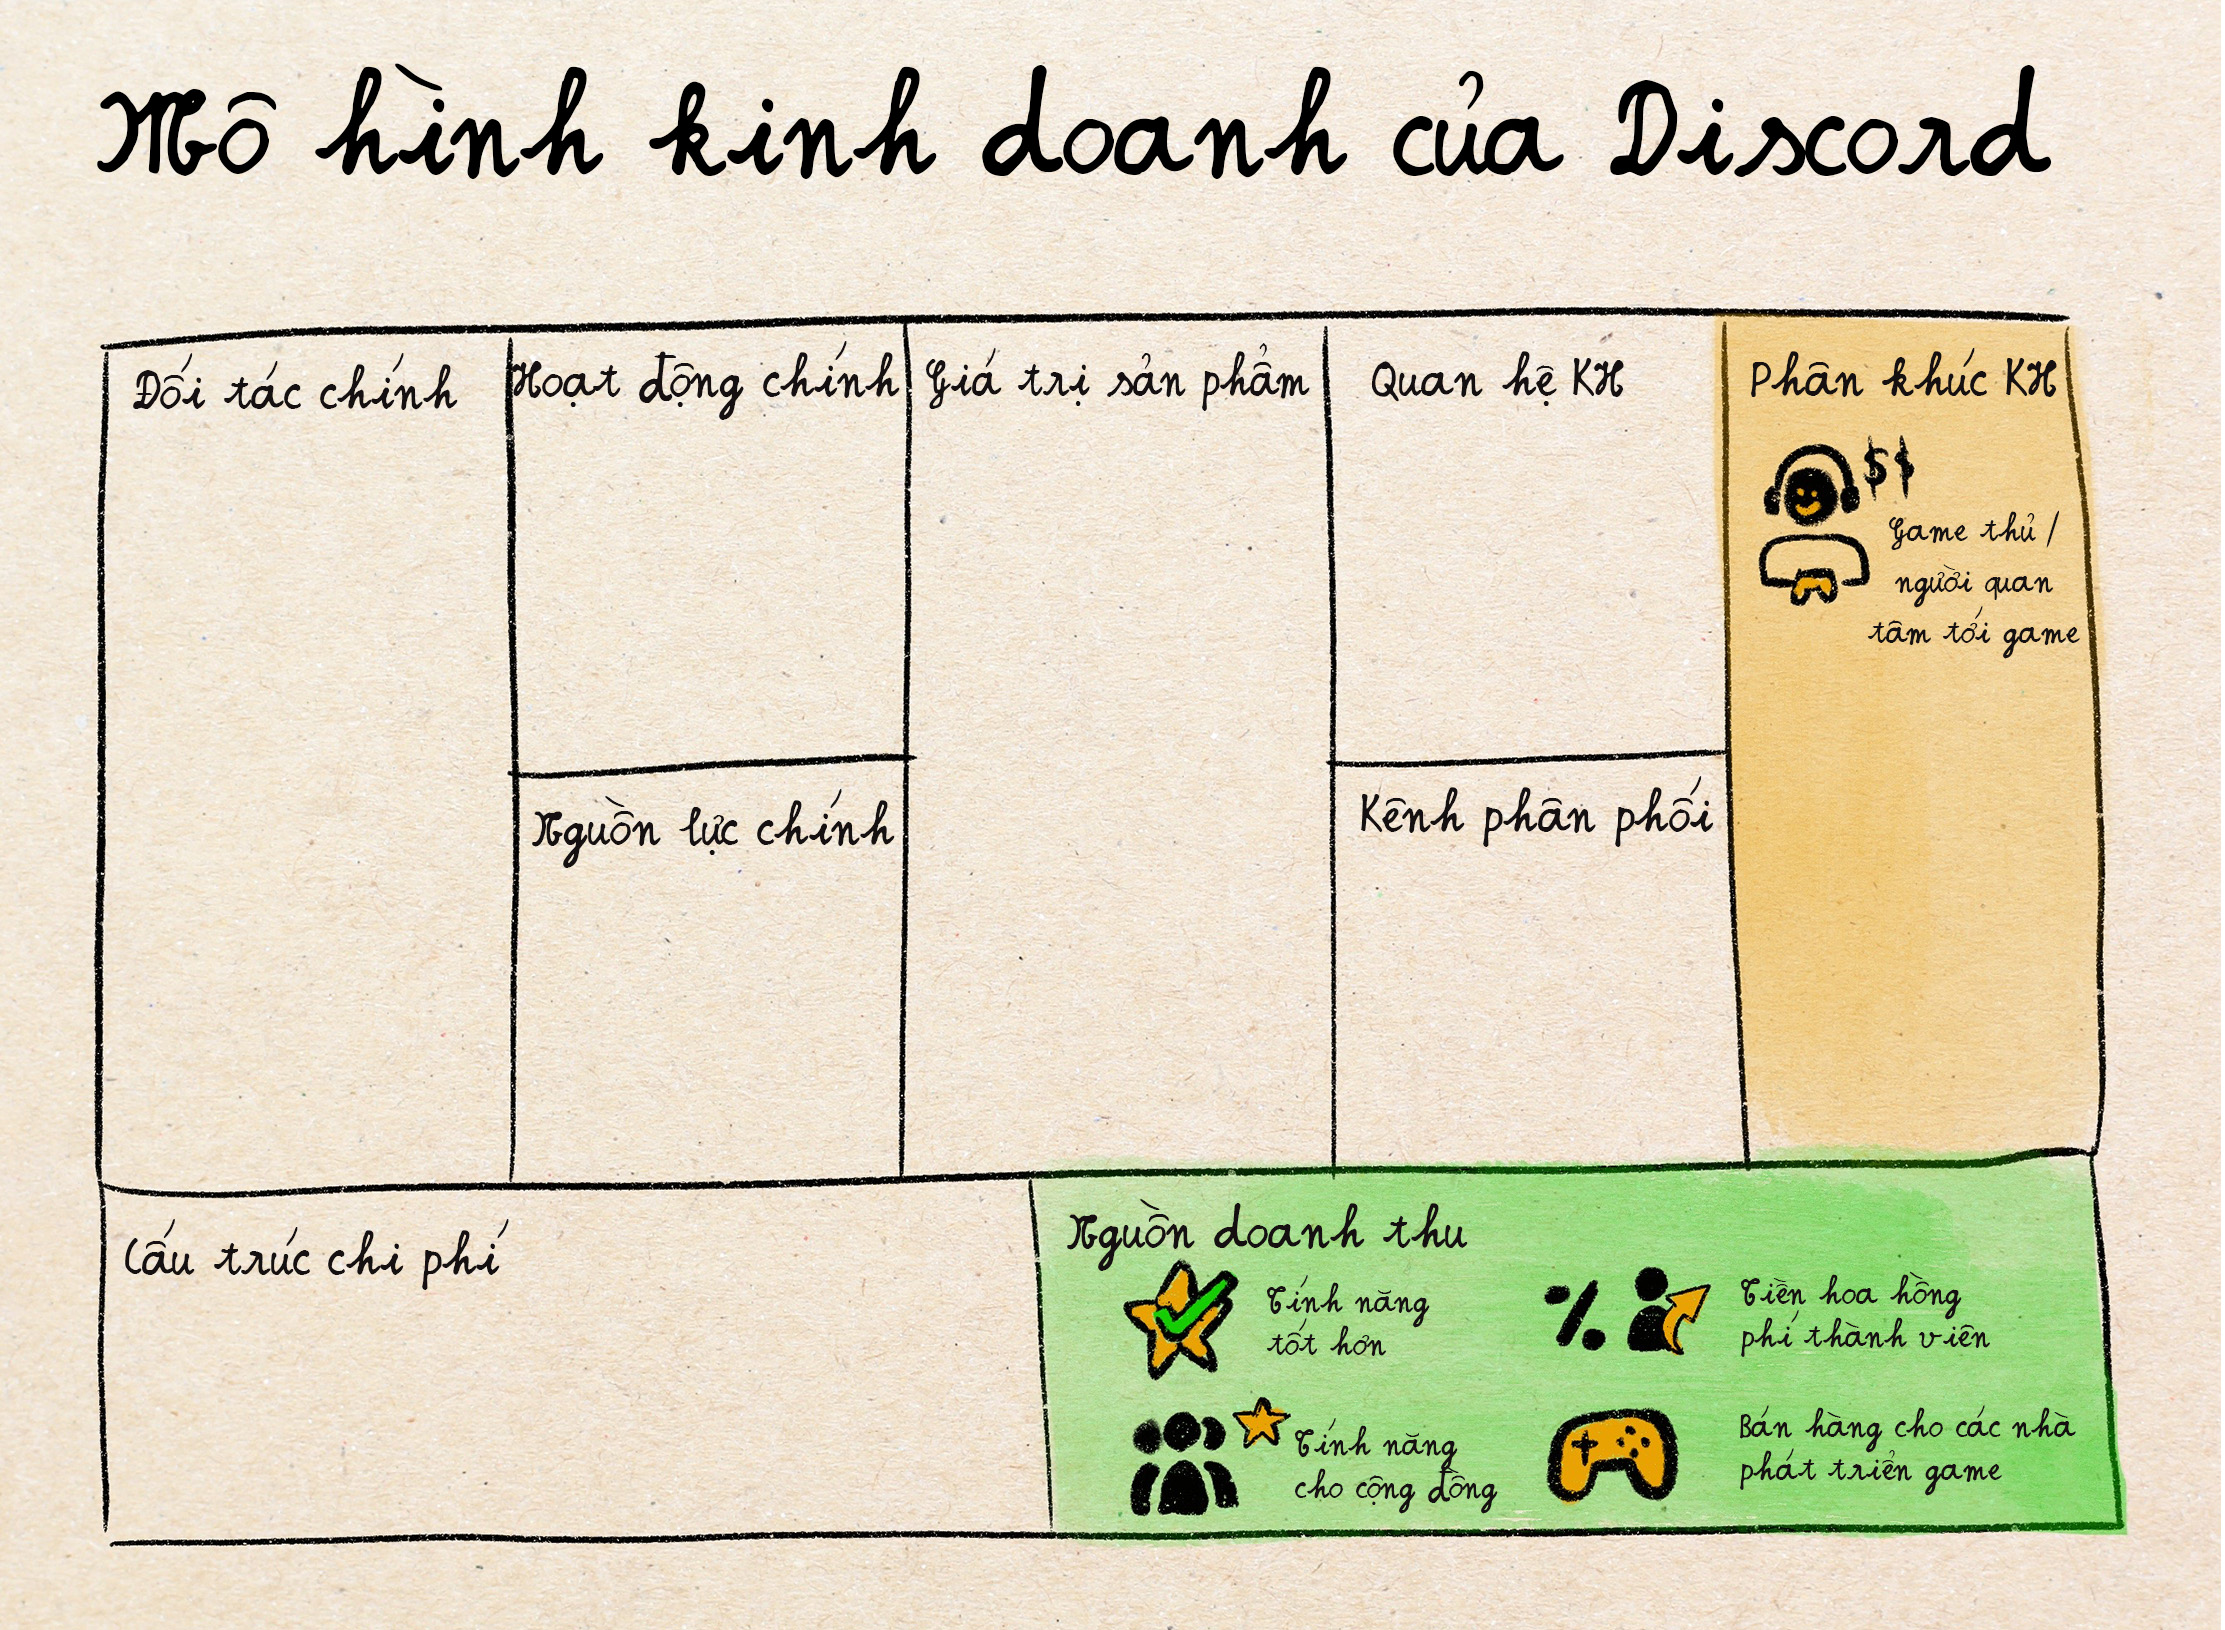 Mô hình kinh doanh của Discord
Đối tác chính
Hoạt động chính
Giá trị sản phẩm
Quan hệ KH
Phân khúc KH
$$
Game thủ /
người quan
tâm tới game
Nguồn lực chính
Kênh phân phối
Cấu trúc chi phí
Nguồn doanh thu
Tính năng
tốt hơn
%
Tiền hoa hồng
phí thành viên
Tính năng
cho cộng đồng
Bán hàng cho các nhà
phát triển game